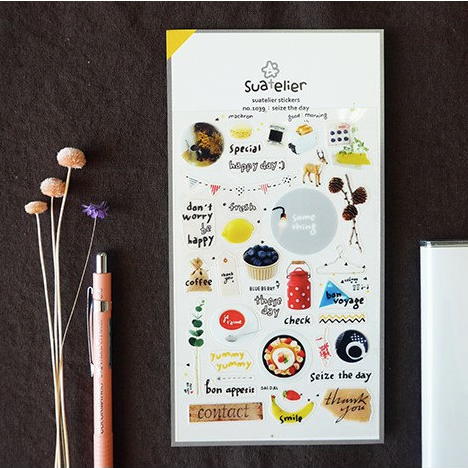 suatelier
suatelier stickers
no.1039 | seize the day
macaron
good morning
special
happy day :)
don't
worry
be
happy
fresh
some
thing
coffee
BLUE BERRY
these
day
bon
voyage
check
yummy
yummy
bon appetit
SALAD
seize the day
contact
smile
thank
you